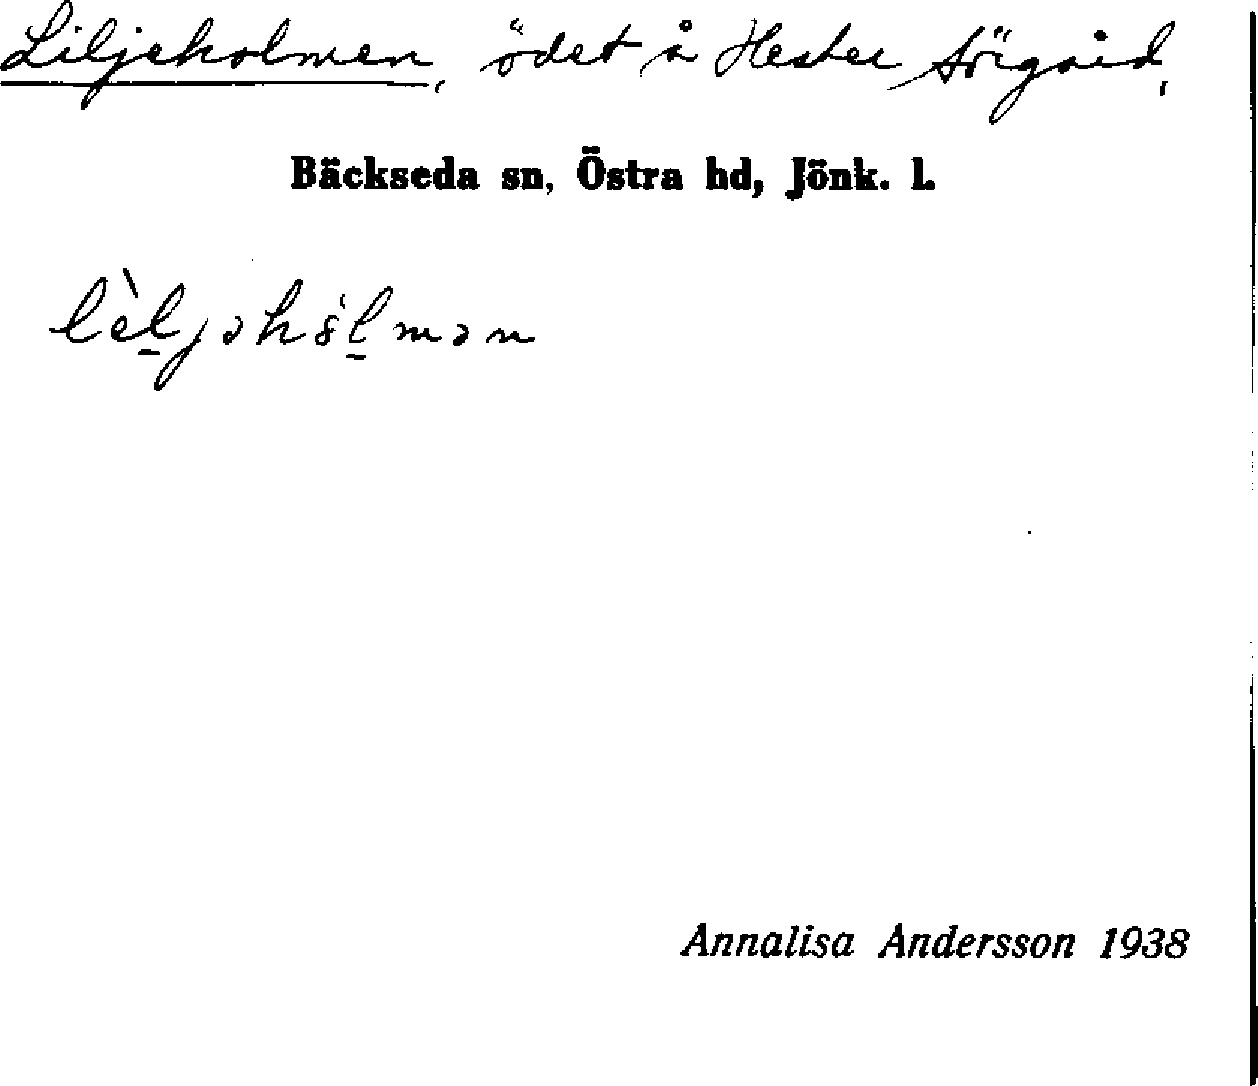 Liljeholmen, ödet å Hester Sörgård,
Bäckseda sn, Östra hd, Jönk. l.
Annalisa Andersson 1938